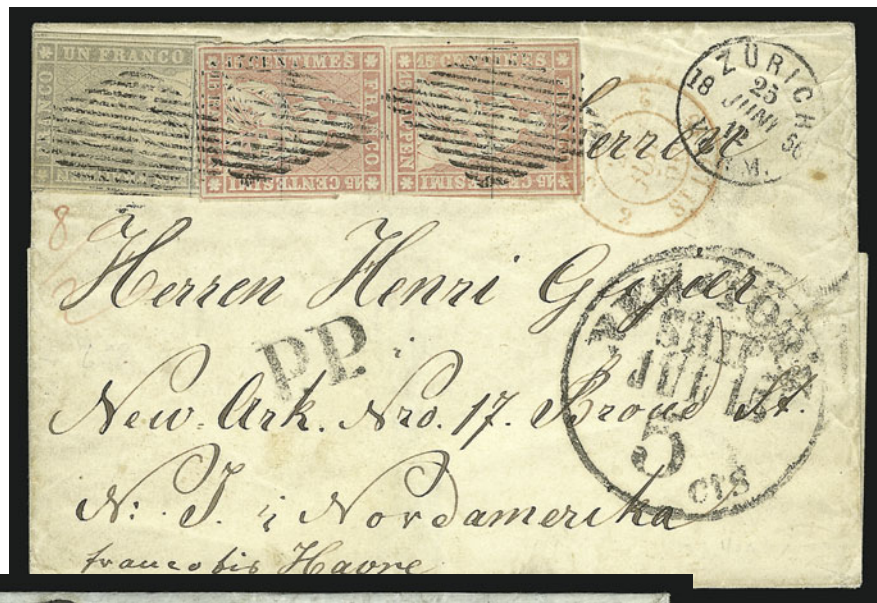 UN FRANCO
FRANCO
15 CENTIMES
FRANCO
15 CENTESIMI
15 CENTIMES
15 CENTESIMI
ZÜRICH
25
JUNI
18 56
M.
SUISSE
2
8
Herren
Herren Henri Gujer
P.P.
NEW-YORK
SHIP
JUL 15
5
cts
New-Ark. Nro. 17. Broad St.
N: J. i Nordamerika
franco bis Havre